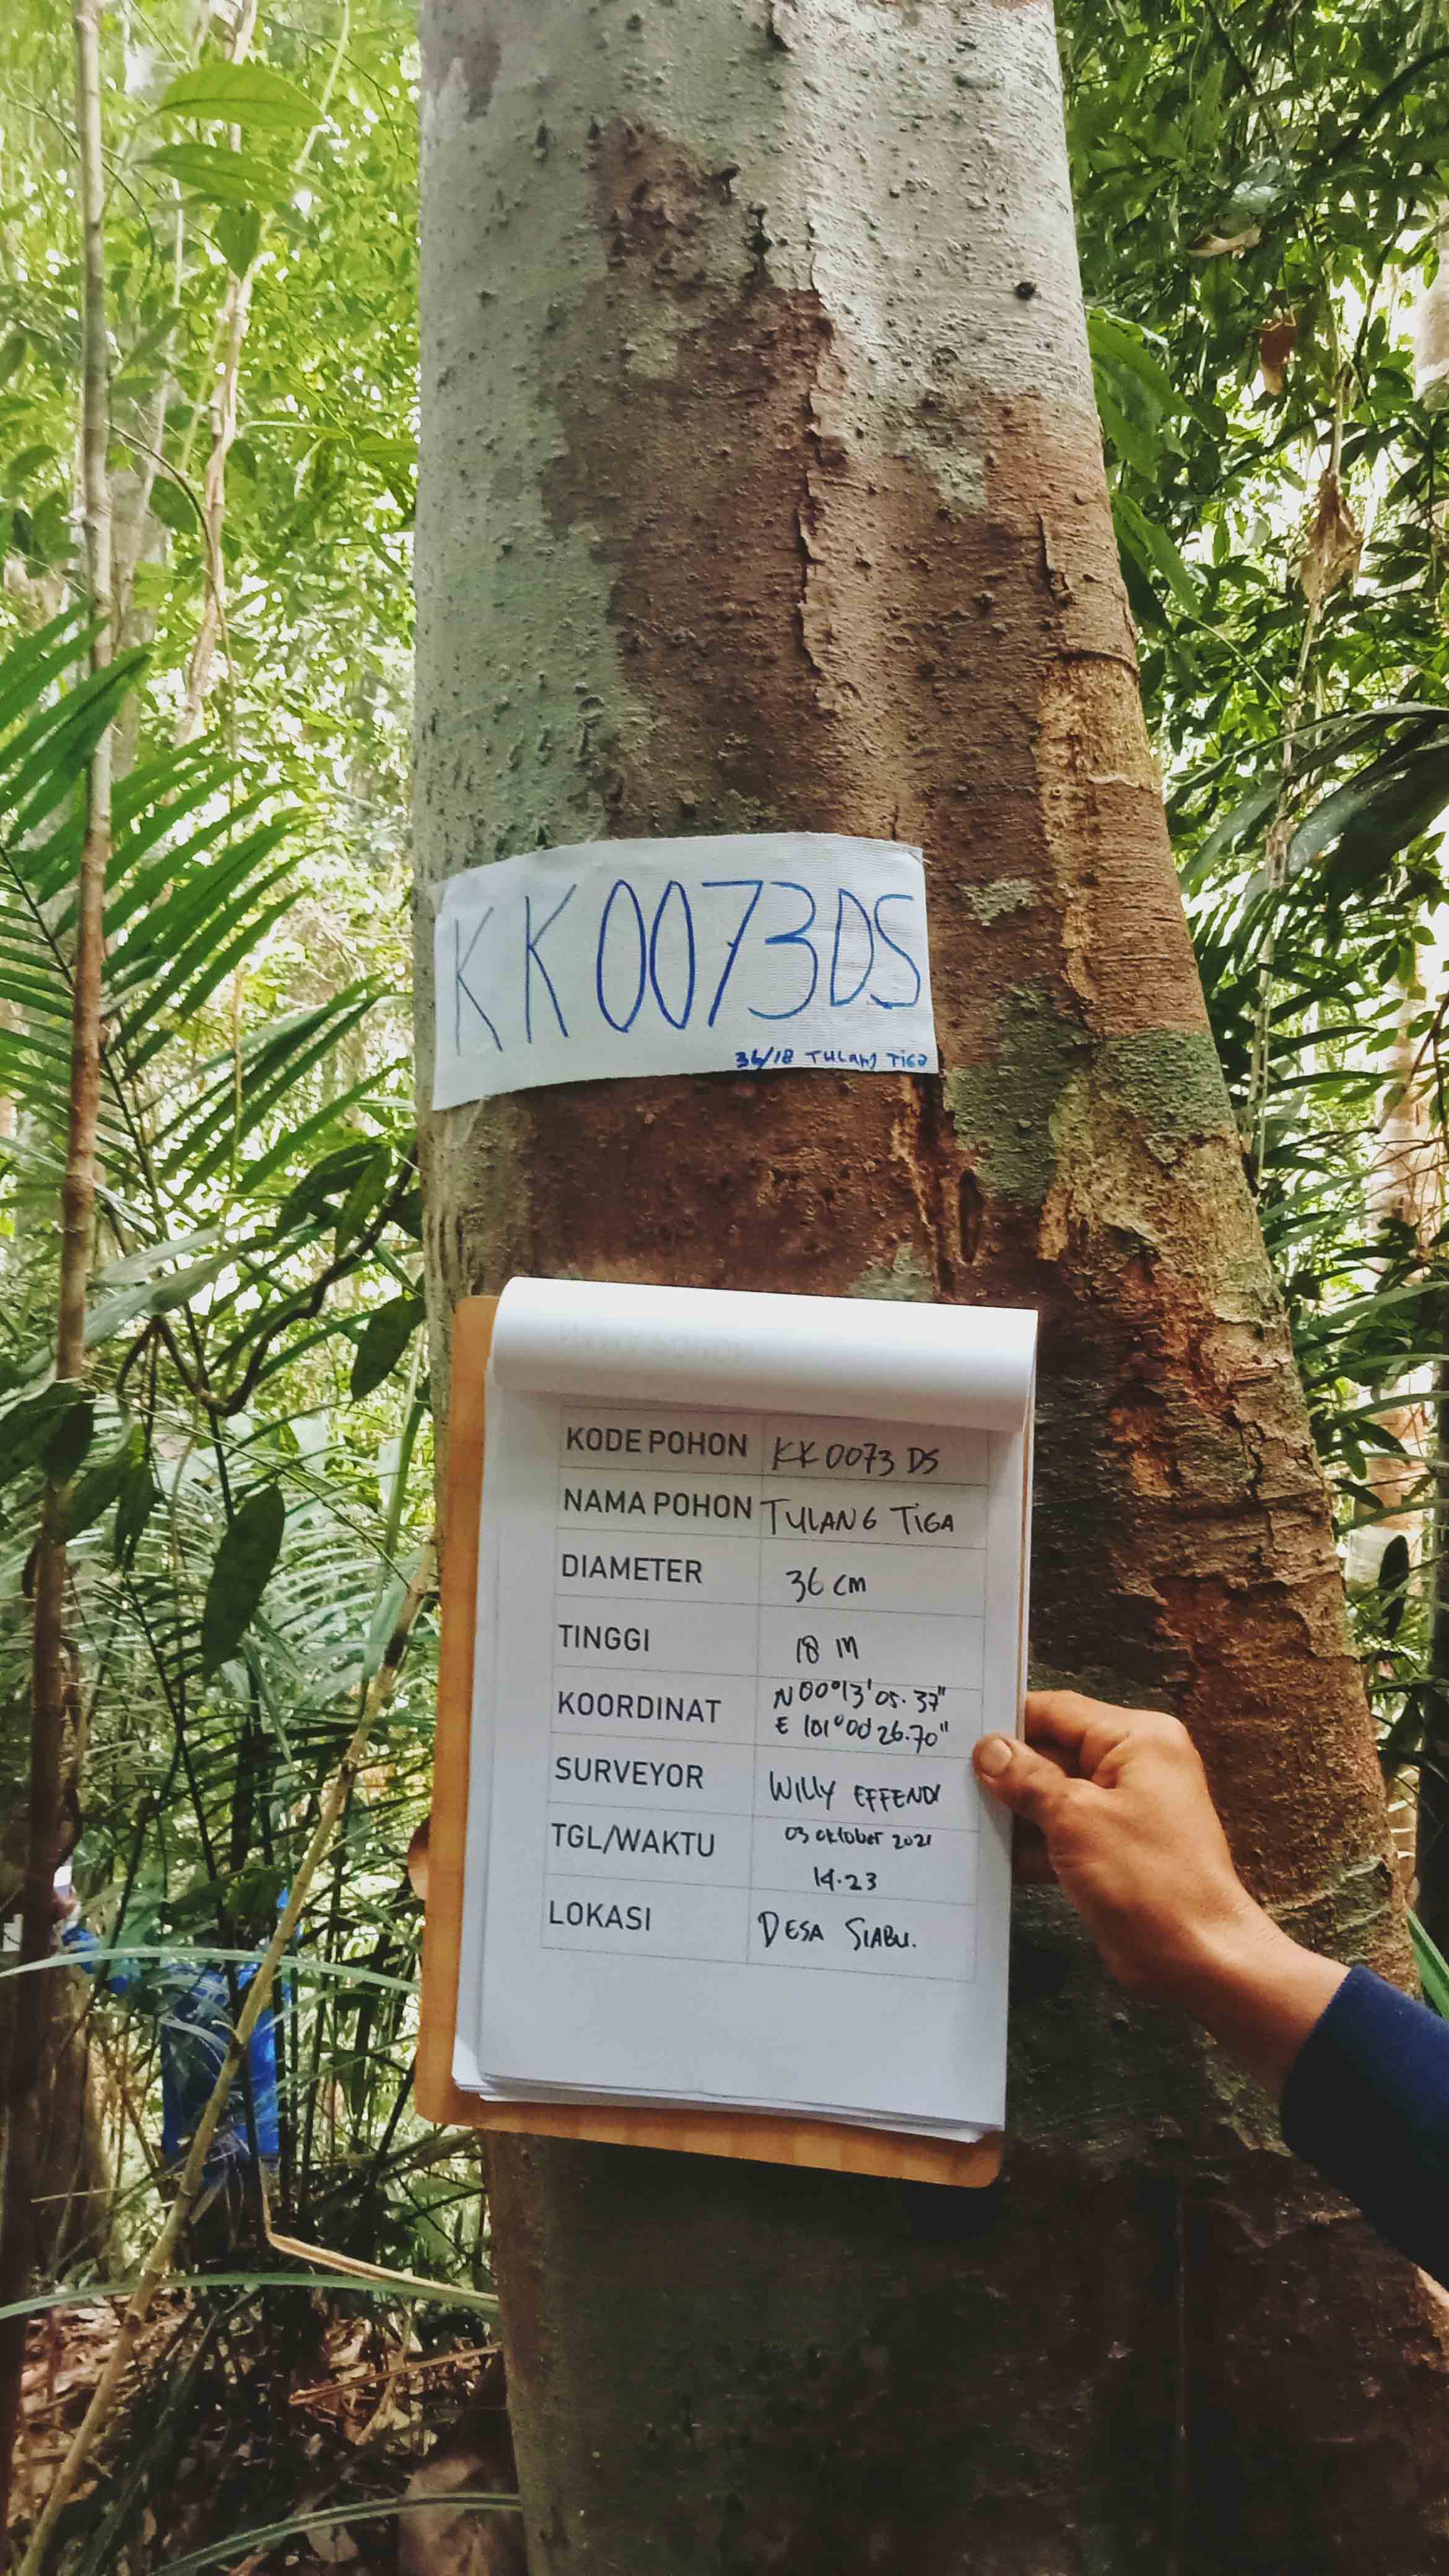 KK0073DS
36/18 TULANG TIGA
KODE POHON KK0073 DS
NAMA POHON TULANG TIGA
DIAMETER 36 cm
TINGGI 18 m
KOORDINAT N 00°13'05.37"
E 101°00'26.70"
SURVEYOR WILLY EFFENDY
TGL/WAKTU 03 oktober 2021
14.23
LOKASI DESA SIABU.